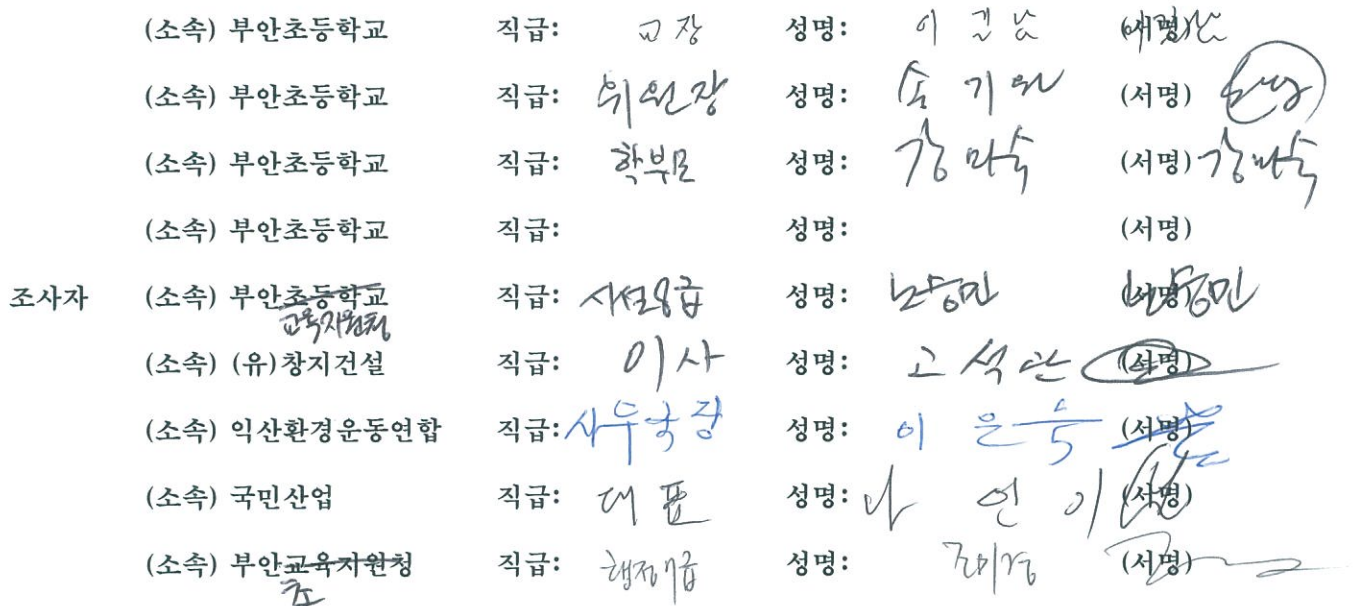 (소속) 부안초등학교 직급: 교장 성명: 이길남 (서명)
(소속) 부안초등학교 직급: 위원장 성명: 송기원 (서명)
(소속) 부안초등학교 직급: 학부모 성명: 강마숙 (서명) 강마숙
(소속) 부안초등학교 직급: 성명: (서명)
조사자 (소속) 부안초등학교 직급: 시설8급 성명: 노승민 (서명)
교육지원청
(소속) (유)창지건설 직급: 이사 성명: 고석관 (서명)
(소속) 익산환경운동연합 직급: 사무국장 성명: 이은숙 (서명)
(소속) 국민산업 직급: 대표 성명: 나연이 (서명)
(소속) 부안교육지원청 직급: 행정7급 성명: 조미경 (서명)
초